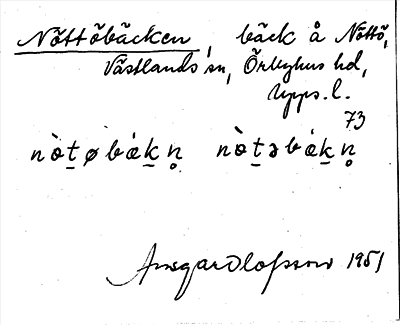 Nöttöbäcken, bäck å Nöttö,
Västlands sn, Örbyhus hd,
Upps. l.
73
nòt̠øbæk̠n̥ nòt̠əbæk̠n̥
Ansgar Olofsson 1951